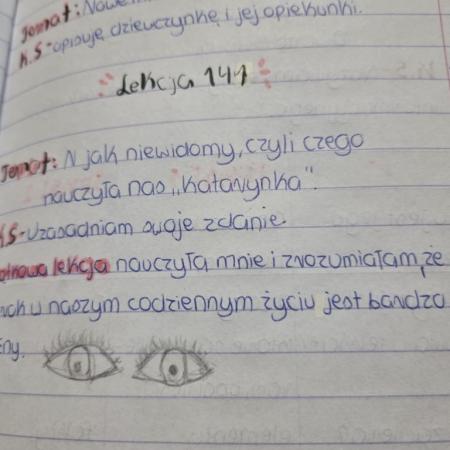 Temat: Nowe
K.S-opisuję dziewczynkę i jej opiekunki.
Lekcja 141
Temat: N jak niewidomy, czyli czego
nauczyła nas „Katarynka".
K.S-Uzasadniam swoje zdanie.
lekcja nauczyła mnie i zrozumiałam, że
w naszym codziennym życiu jest bardzo